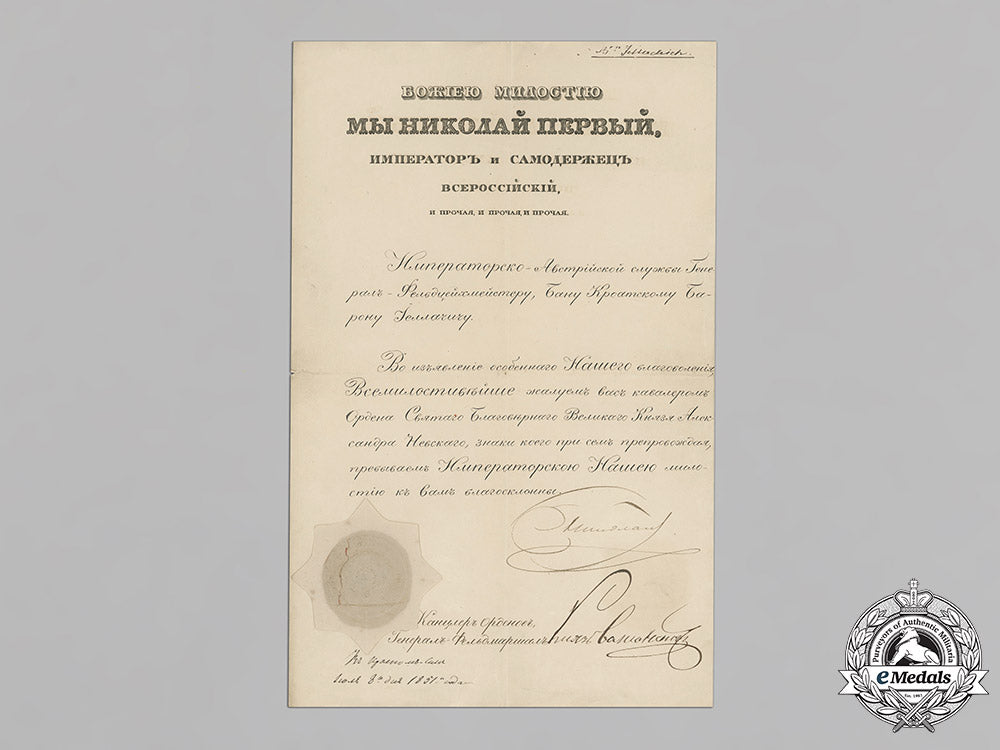 БОЖІЕЮ МИЛОСТІЮ
МЫ НИКОЛАЙ ПЕРВЫЙ,
ИМПЕРАТОРЪ и САМОДЕРЖЕЦЪ
ВСЕРОССІЙСКІЙ,
И ПРОЧАЯ, И ПРОЧАЯ, И ПРОЧАЯ.
Императорско-Австрійской службы Гене-
ралъ-Фельдцейхмейстеру, Бану Кроатскому Ба-
рону Іеллачичу.
Во изъявленіе особеннаго Нашего благоволенія
Всемилостивѣйше жалуемъ васъ кавалеромъ
Ордена Святаго Благовѣрнаго Великаго Князя Алек-
сандра Невскаго, знаки коего при семъ препровождая,
пребываемъ Императорскою Нашею мило-
стію къ вамъ благосклонны.
Николай
Канцлеръ Орденовъ,
Генералъ-Фельдмаршалъ Князь
1851 года
Purveyors of Authentic Militaria
eMedals
Est. 1967